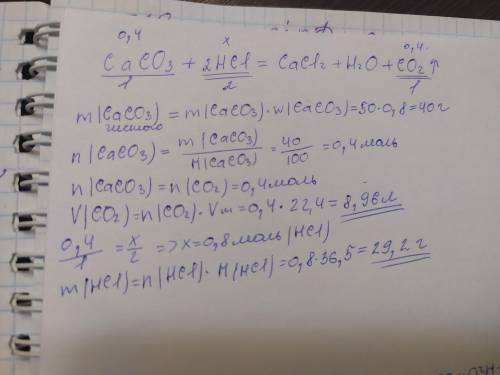 0,4 x 0,4
CaCO3 + 2HCl = CaCl2 + H2O + CO2↑
1 2 1
m(CaCO3) = m(CaCO3)·w(CaCO3)=50·0,8=40г
чистого
n(CaCO3) = m(CaCO3)/M(CaCO3) = 40/100 = 0,4моль
n(CaCO3)=n(CO2)=0,4моль
V(CO2)=n(CO2)·Vm=0,4·22,4=8,96л
0,4/1 = x/2 => x=0,8моль(HCl)
m(HCl)=n(HCl)·M(HCl)=0,8·36,5=29,2г